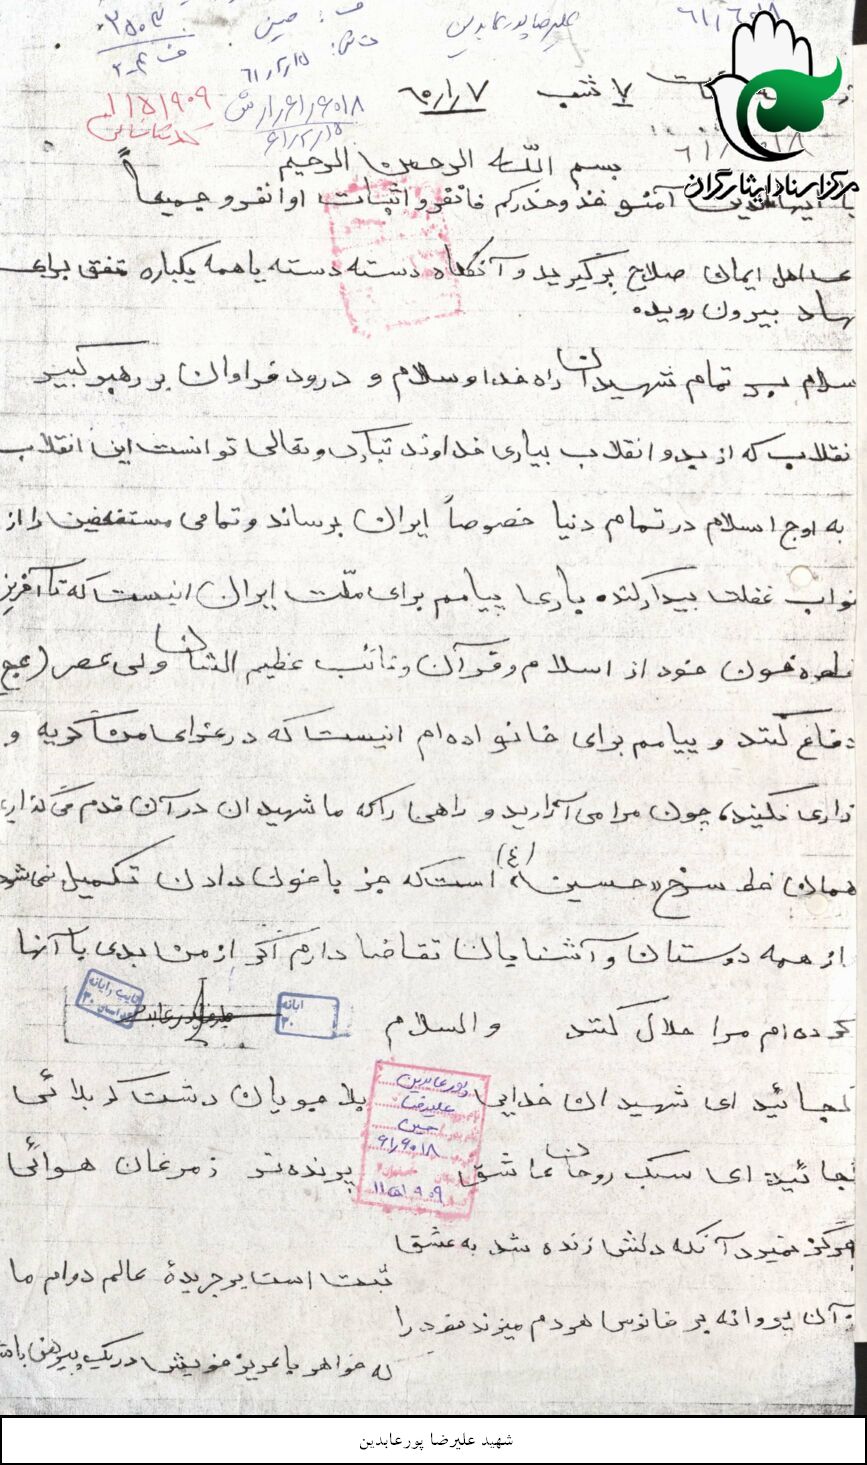 علیرضا پورعابدین
۶۱/۶۰۱۸
۷ شب ۷/۱/۶۵
مرکز اسناد ایثارگران
بسم اللّه الرحمن الرحیم
آمنو خذوحذرکم فانفرو اثبات اوانفرو جمیعاً
اهل ایمان صلاح برگیرید و آنگاه دسته دسته یا همه یکباره متفق برای
بیرون روید
سلام بر تمام شهیدان راه خدا و سلام و درود فراوان بر رهبر کبیر
نقلاب که از بدو انقلاب بیاری خداوند تبارک وتعالی توانست این انقلاب
به اوج اسلام در تمام دنیا خصوصاً ایران برساند و تمامی مستضعفین را از
واب غفلت بیدار کنده باری پیامم برای ملّت ایران اینست که تا آخرین
خون خود از اسلام و قرآن و نائب عظیم الشان ولی عصر (عج
دفاع کنند و پیامم برای خانواده‌ام اینست که در عزای من گریه و
زاری نکیند، چون مرا می آزارید و راهی را که ما شهیدان در آن قدم می گذاریم
همان خط سرخ «حسین (ع)» است که جز با خون دادن تکمیل نمی شود
از همه دوستان و آشنایان تقاضا دارم اگر از من بدی با آنها
کرده‌ام مرا حلال کنند والسلام
کجائید ای شهیدان خدایی بلا جویان دشت کربلائی
جائید ای سبک روحان عاشق پرنده‌تر ز مرغان هوائی
هرگز نمیرد آنکه دلش زنده شد به عشق
ثبت است بر جریدهٔ عالم دوام ما
آن پروانه بر فانوس هردم میزند خود را
که خواهر با عزیز خویش در یک پیرهن باشد
پورعابدین
علیرضا
حسین
۶۱/۶۰۱۸
شهید علیرضا پورعابدین